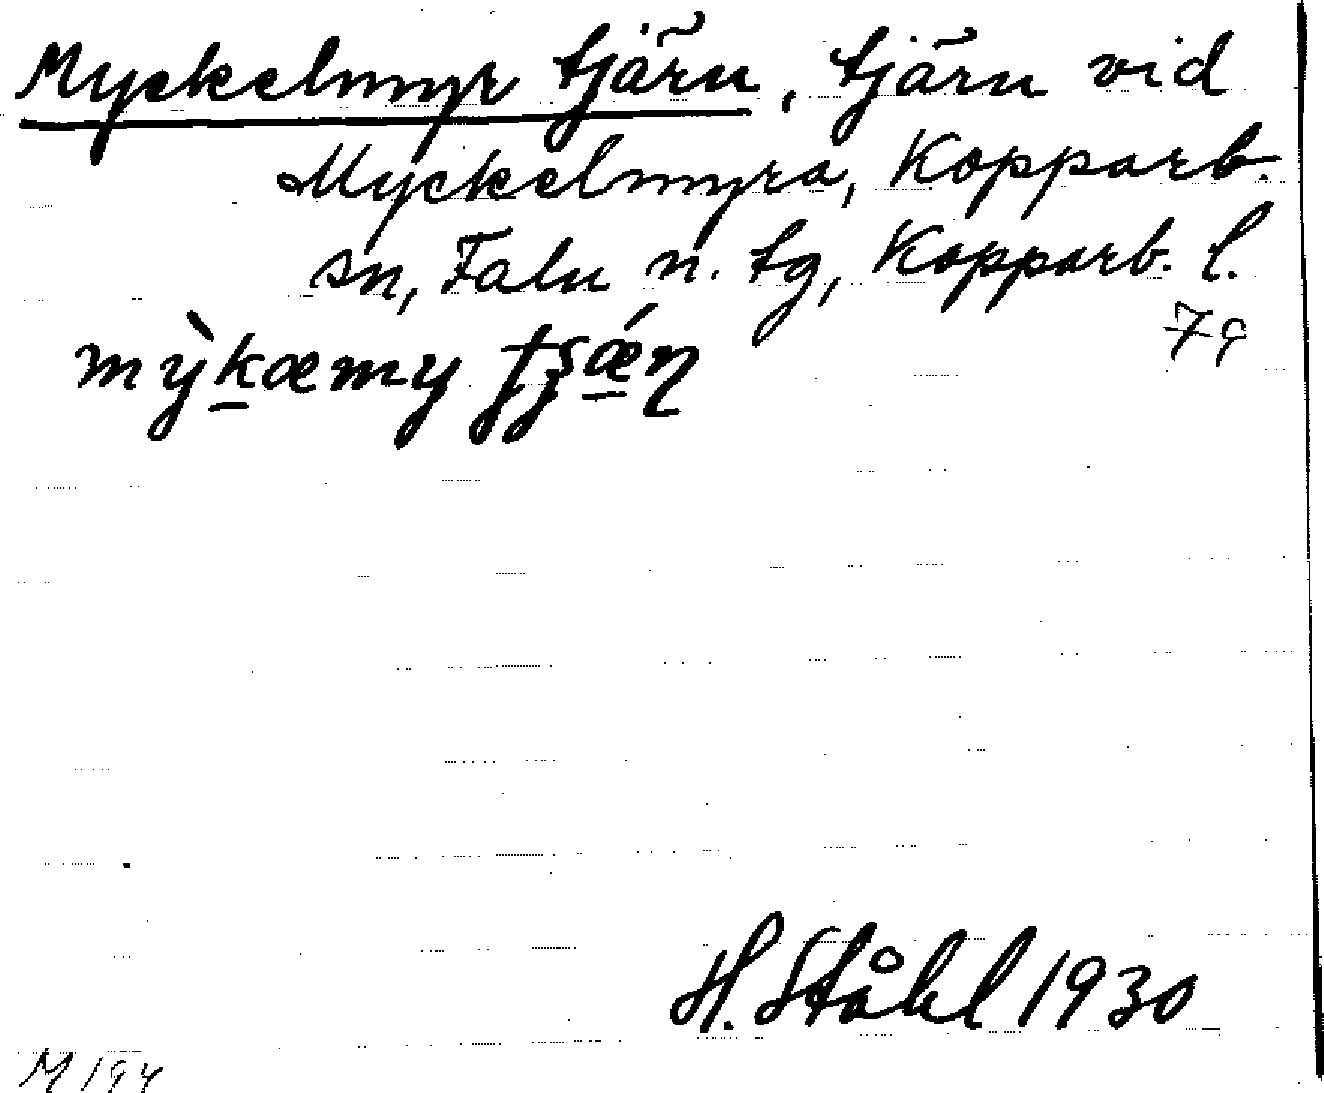 Myckelmyr tjärn, tjärn vid
Myckelmyra, Kopparb.
sn, Falu n. tg, Kopparb. l.
79
H. Ståhl 1930
M 194